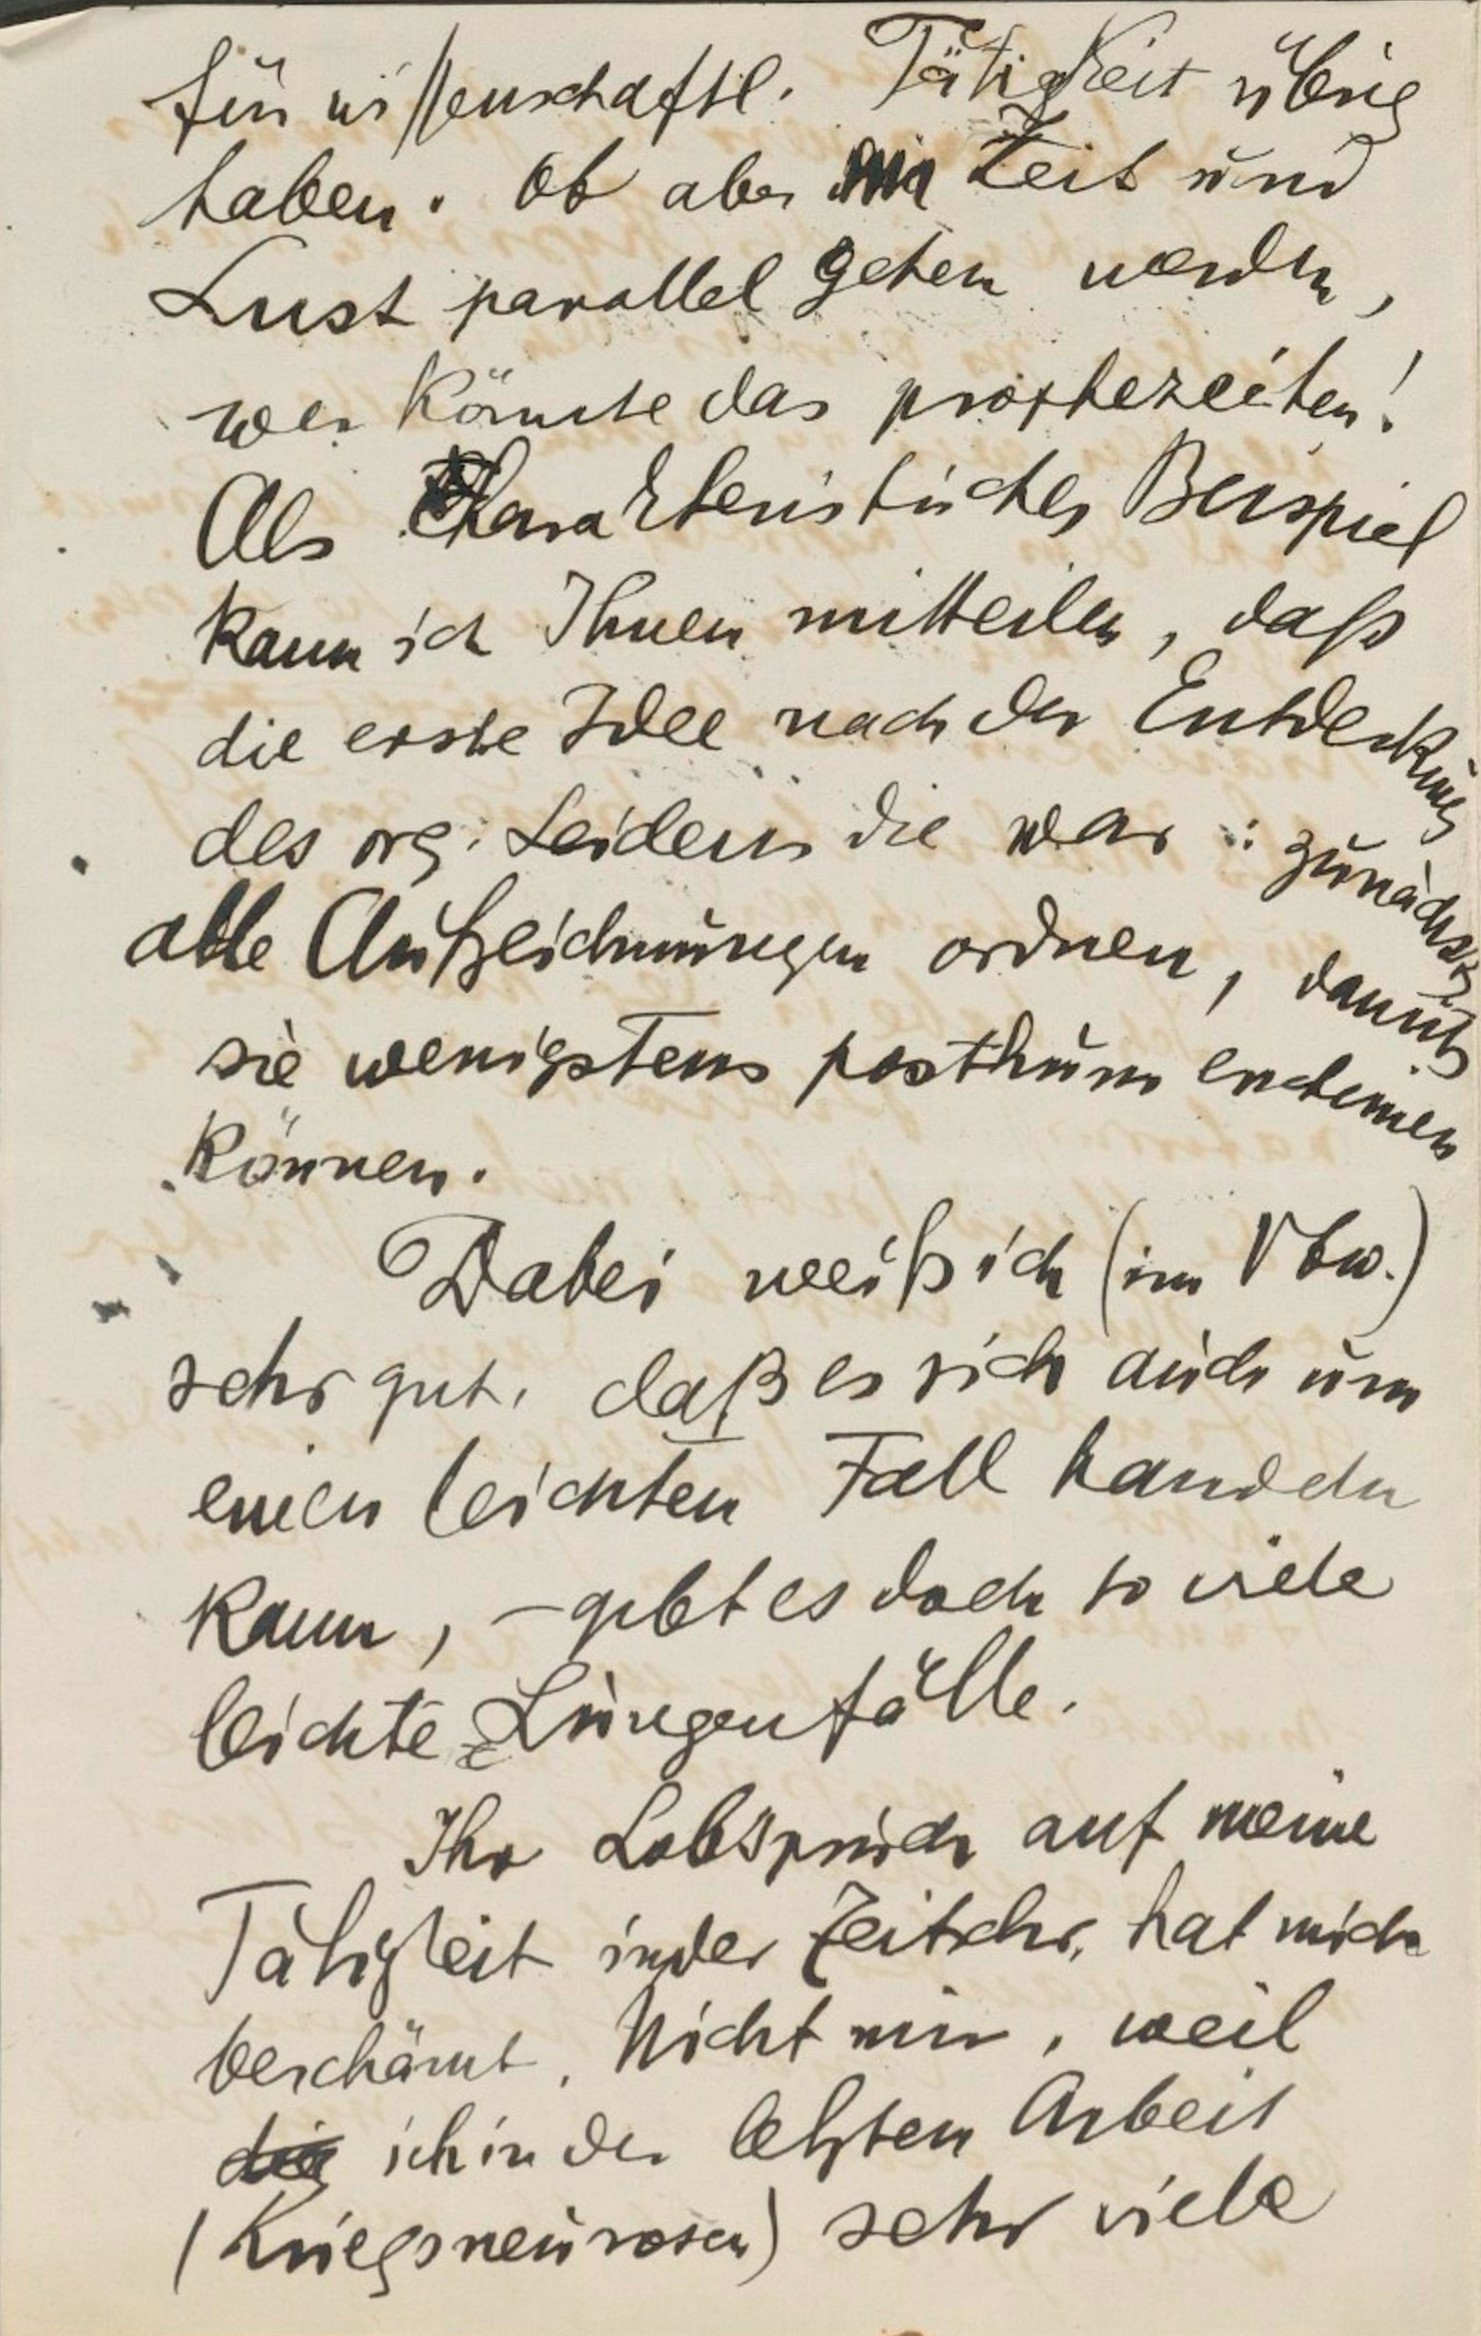 für wissenschaftl. Tätigkeit übrig
haben. Ob aber Zeit und
Lust parallel gehen werden,
wer könnte das prophezeihen!
Als Charakteristisches Beispiel
kann ich Ihnen mitteilen, daß
die erste Idee nach der Entdeckung
des org. Leidens die war: zunächst
alle Aufzeichnungen ordnen, damit
sie wenigstens posthum erscheinen
können.
Dabei weiß ich (im Vbw.)
sehr gut, daß es sich auch um
einen leichten Fall handeln
kann, – gibt es doch so viele
leichte Lungenfälle.
Ihr Lobspruch auf meine
Tätigkeit in der Zeitschr. hat mich
beschämt. Nicht nur, weil
die ich in der letzten Arbeit
(Kriegsneurosen) sehr viele